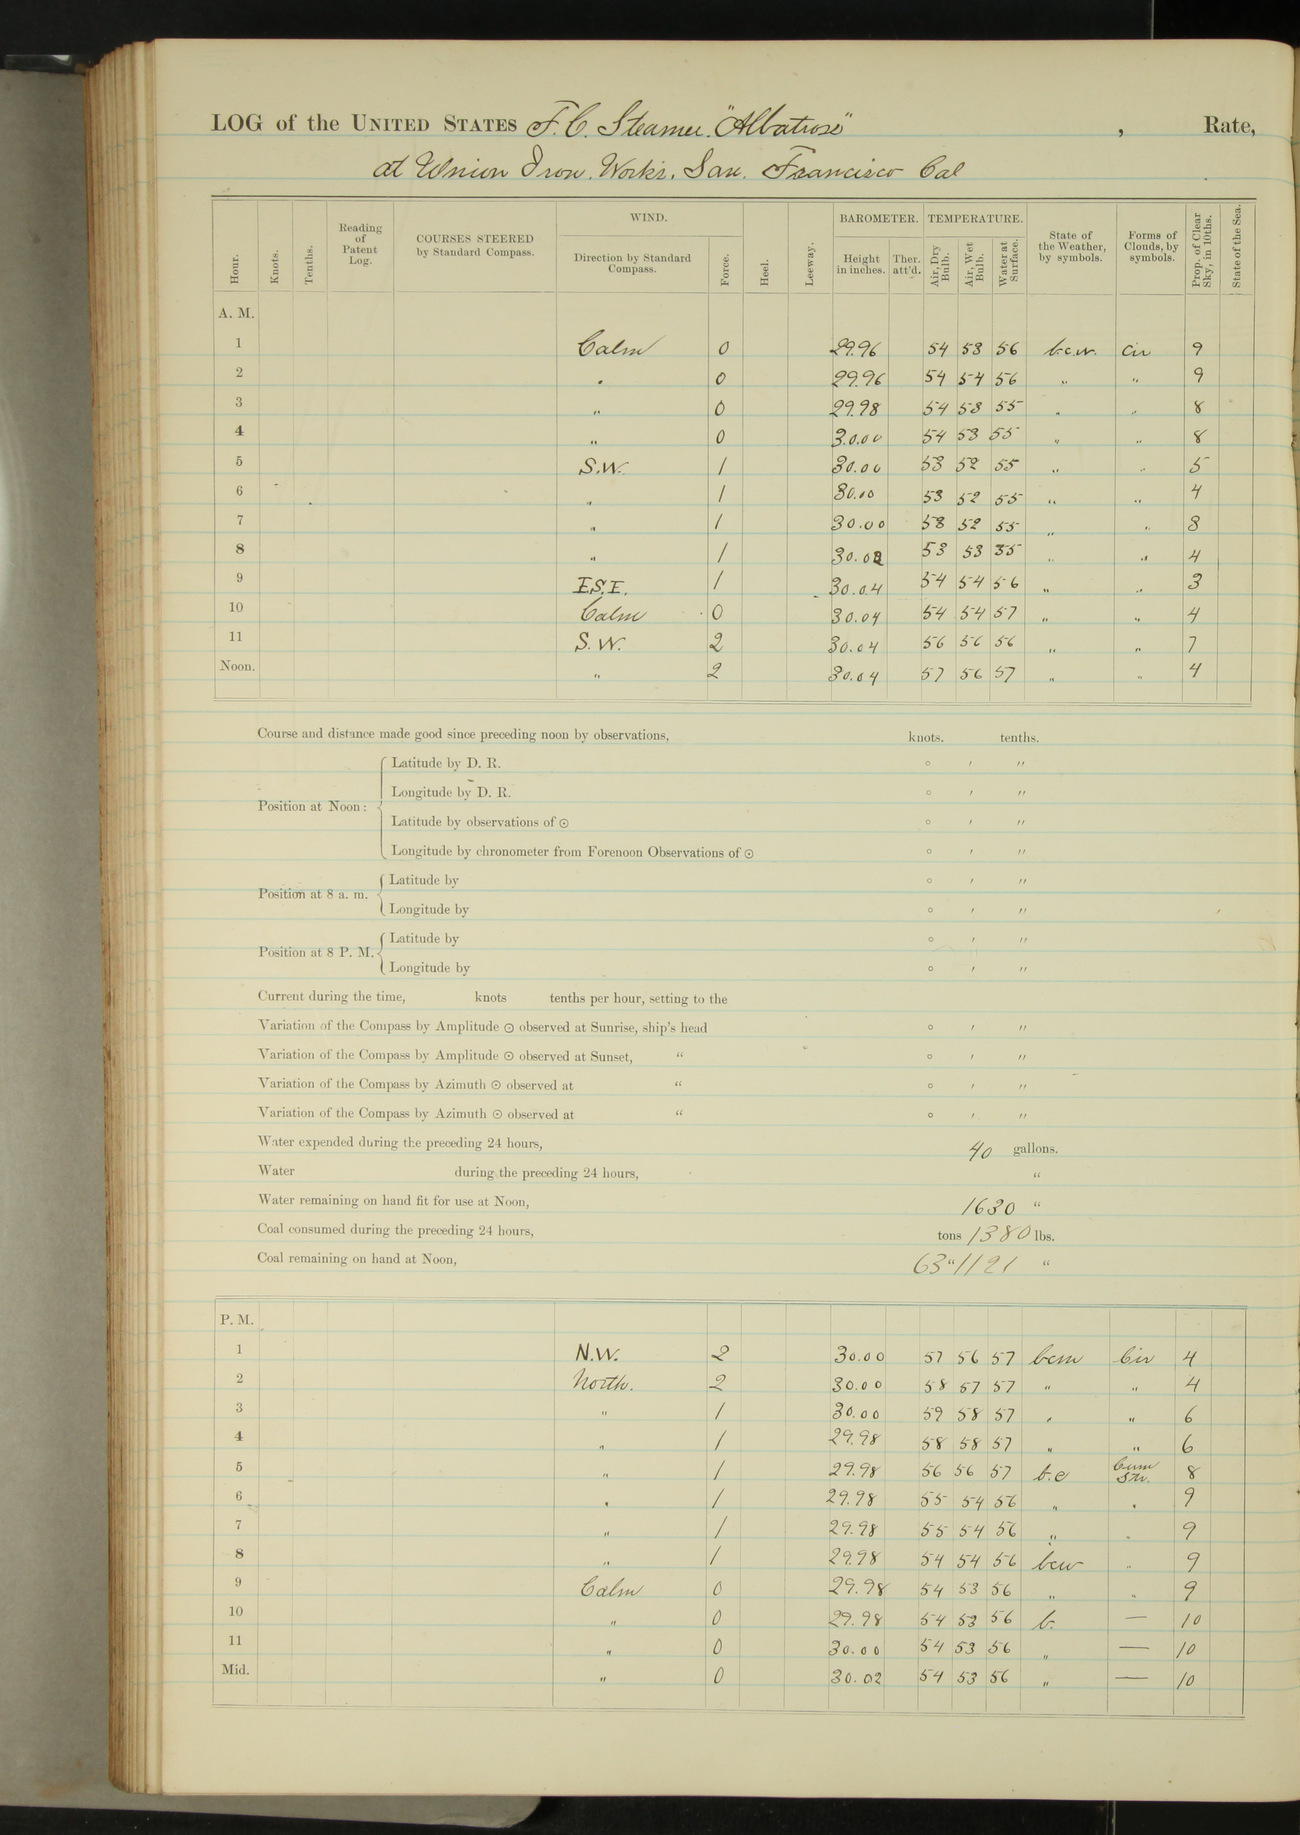 LOG of the UNITED STATES F. C. Steamer. "Albatross", Rate,
at Union Iron. Works, San. Francisco Cal
Hour. Knots. Tenths. Reading of Patent Log. COURSES STEERED by Standard Compass. WIND. Direction by Standard Compass. Force. Heel. Leeway. BAROMETER. Height in inches. Ther. att'd. TEMPERATURE. Air, Dry Bulb. Air, Wet Bulb. Water at Surface. State of the Weather, by symbols. Forms of Clouds, by symbols. Prop. of Clear Sky, in 10ths. State of the Sea.
A. M.
1 Calm 0 29.96 54 53 56 b.c.m. Cir 9
2 " 0 29.96 54 54 56 " " 9
3 " 0 29.98 54 53 55 " " 8
4 " 0 30.00 54 53 55 " " 8
5 S.W. 1 30.00 53 52 55 " " 5
6 " 1 30.00 53 52 55 " " 4
7 " 1 30.00 53 52 55 " " 8
8 " 1 30.02 53 53 55 " " 4
9 E.S.E. 1 30.04 54 54 56 " " 3
10 Calm 0 30.04 54 54 57 " " 4
11 S. W. 2 30.04 56 56 56 " " 7
Noon. " 2 30.04 57 56 57 " " 4
Course and distance made good since preceding noon by observations, knots. tenths.
Position at Noon: Latitude by D. R. ° ′ ″
Longitude by D. R. ° ′ ″
Latitude by observations of ⊙ ° ′ ″
Longitude by chronometer from Forenoon Observations of ⊙ ° ′ ″
Position at 8 a. m. Latitude by ° ′ ″
Longitude by ° ′ ″
Position at 8 P. M. Latitude by ° ′ ″
Longitude by ° ′ ″
Current during the time, knots tenths per hour, setting to the
Variation of the Compass by Amplitude ⊙ observed at Sunrise, ship's head ° ′ ″
Variation of the Compass by Amplitude ⊙ observed at Sunset, " ° ′ ″
Variation of the Compass by Azimuth ⊙ observed at " ° ′ ″
Variation of the Compass by Azimuth ⊙ observed at " ° ′ ″
Water expended during the preceding 24 hours, 40 gallons.
Water during the preceding 24 hours, "
Water remaining on hand fit for use at Noon, 1630 "
Coal consumed during the preceding 24 hours, tons 1380 lbs.
Coal remaining on hand at Noon, 63 " 1121 "
P. M.
1 N.W. 2 30.00 57 56 57 bcm Cir 4
2 North. 2 30.00 58 57 57 " " 4
3 " 1 30.00 59 58 57 " " 6
4 " 1 29.98 58 58 57 " " 6
5 " 1 29.98 56 56 57 b.c Cum Str. 8
6 " 1 29.98 55 54 56 " " 9
7 " 1 29.98 55 54 56 " " 9
8 " 1 29.98 54 54 56 bcw " 9
9 Calm 0 29.98 54 53 56 " " 9
10 " 0 29.98 54 53 56 b. — 10
11 " 0 30.00 54 53 56 " — 10
Mid. " 0 30.02 54 53 56 " — 10